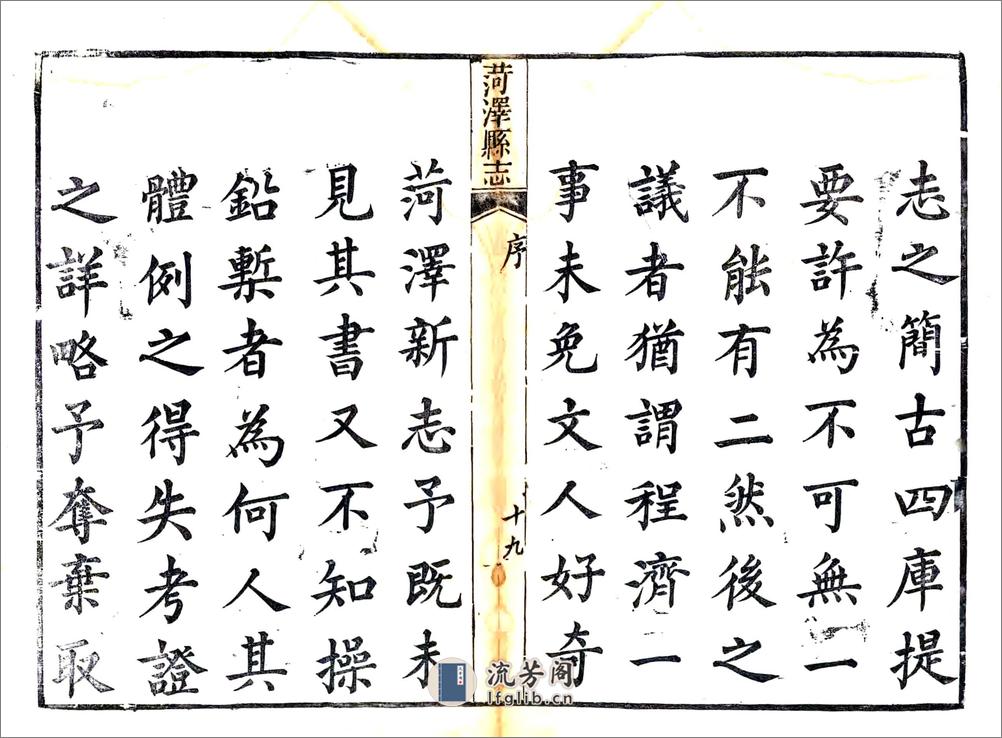 志之簡古四庫提
要許為不可無一
不能有二然後之
議者猶謂程濟一
事未免文人好奇
菏澤縣志
序
十九
菏澤新志予既未
見其書又不知操
鉛槧者為何人其
體例之得失考證
之詳略予奪棄取
流芳阁
lfglib.cn